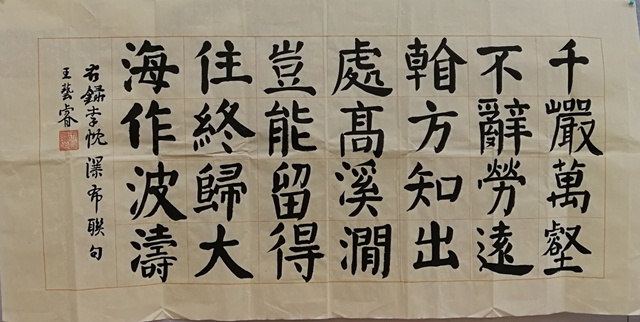 千巗萬壑
不辭勞遠
看方知出
處髙溪澗
豈能留得
住終歸大
海作波濤
右錄李忱瀑布聯句
王藝睿